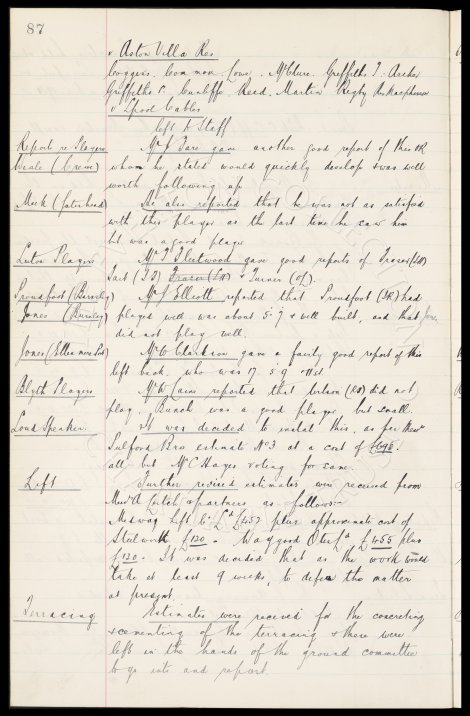 87
v Aston Villa Res
Coggins. Common. Lowe. McClure. Griffiths T. Archer
Griffiths P. Cunliffe. Read. Martin Rigby. Macpherson
v Lpool Cables
left to Staff
Report re Players Mr J Fare gave another good report of this IR
Neale (Crewe) whom he stated would quickly develop & was well
worth following up
Meek (Gateshead) He also reported that he was not as satisfied
with this player as the last time he saw him
but was a good player
Luton Players Mr T Fleetwood gave good reports of Fraser (LH)
Tait (IL) Fraser (LH) & Turner (OL).
Proudfoot (Barnsley) Mr J Elliott reported that Proudfoot (IR) had
Jones (Barnsley) played well was about 5.7 & well built, and that Jones
did not play well.
Jones (Ellesmere Port) Mr W Clarkson gave a fairly good report of this
left back, who was 17. 5.9
Blyth Players Mr W Cains reported that Wilson (RB) did not
play. Bunch was a good player but small.
Loud Speaker. It was decided to instal this, as per Messrs
Salford Bros estimate No 3 at a cost of £195.
all but Mr C Hayes voting for same.
Lift Further revised estimates were received from
Messrs A Leitch & partners as follows:-
Medway Lift Co Ltd £457 plus approximate cost of
Steelwork £130 - Waygood Otis Ltd £455 plus
£130. It was decided that as the work would
take at least 9 weeks, to defer the matter
at present.
Terracing Estimates were received for the concreting
& cementing of the terracing & these were
left in the hands of the ground committee
to go into and report.